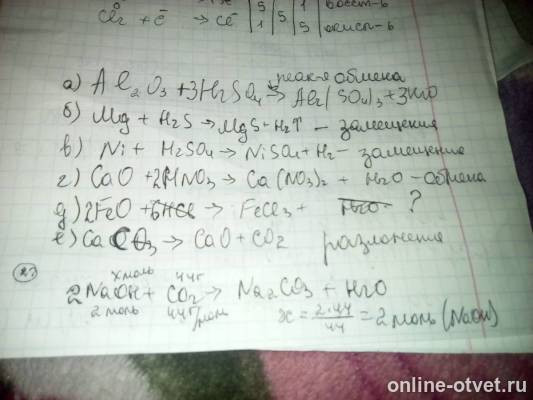 Cl₂⁰ + ē → Cl⁻ | 5 | 5 | 1 | восст-ь
1 | 5 | окисл-ь
реак-я обмена
а) Al₂O₃ + 3H₂SO₄ → Al₂(SO₄)₃ + 3H₂O
б) Mg + H₂S → MgS + H₂↑ – замещения
в) Ni + H₂SO₄ → NiSO₄ + H₂ – замещение
г) CaO + 2HNO₃ → Ca(NO₃)₂ + H₂O – обмена
д) 2FeO + 6HCl → FeCl₃ + H₂O ?
е) CaCO₃ → CaO + CO₂ разложения
23
x моль 44г
2NaOH + CO₂ → Na₂CO₃ + H₂O
2 моль 44г/моль x = 2·44/44 = 2 моль (NaOH)
online-otvet.ru